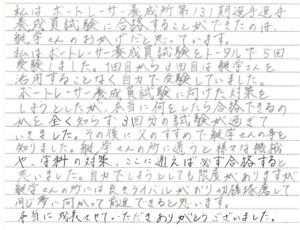 私はボートレーサー養成所第131期選手選手
養成員試験に合格することができたのは、
継学さんのおかげだと思っています。
私はボートレーサー養成員試験をトータルで5回
受験しました。1回目から3回目は継学さんを
利用することなく自力で受験していました。
ボートレーサー養成員試験に向けた対策を
しようとしたが、本当に何をしたら合格できるの
かを全く知らず3回分の試験が過ぎて
いきました。その後に人のすすめで継学さんの事を
知りました。継学さんの所に通うと様々な機械
や、学科の対策、ここに通えば必ず合格すると
思いました。自力でしようとしても限度がありますが
継学さんの所には良きライバルがおり切磋琢磨して
同じ夢に向かって前進できると思います。
本当に成長させていただきありがとうございました。